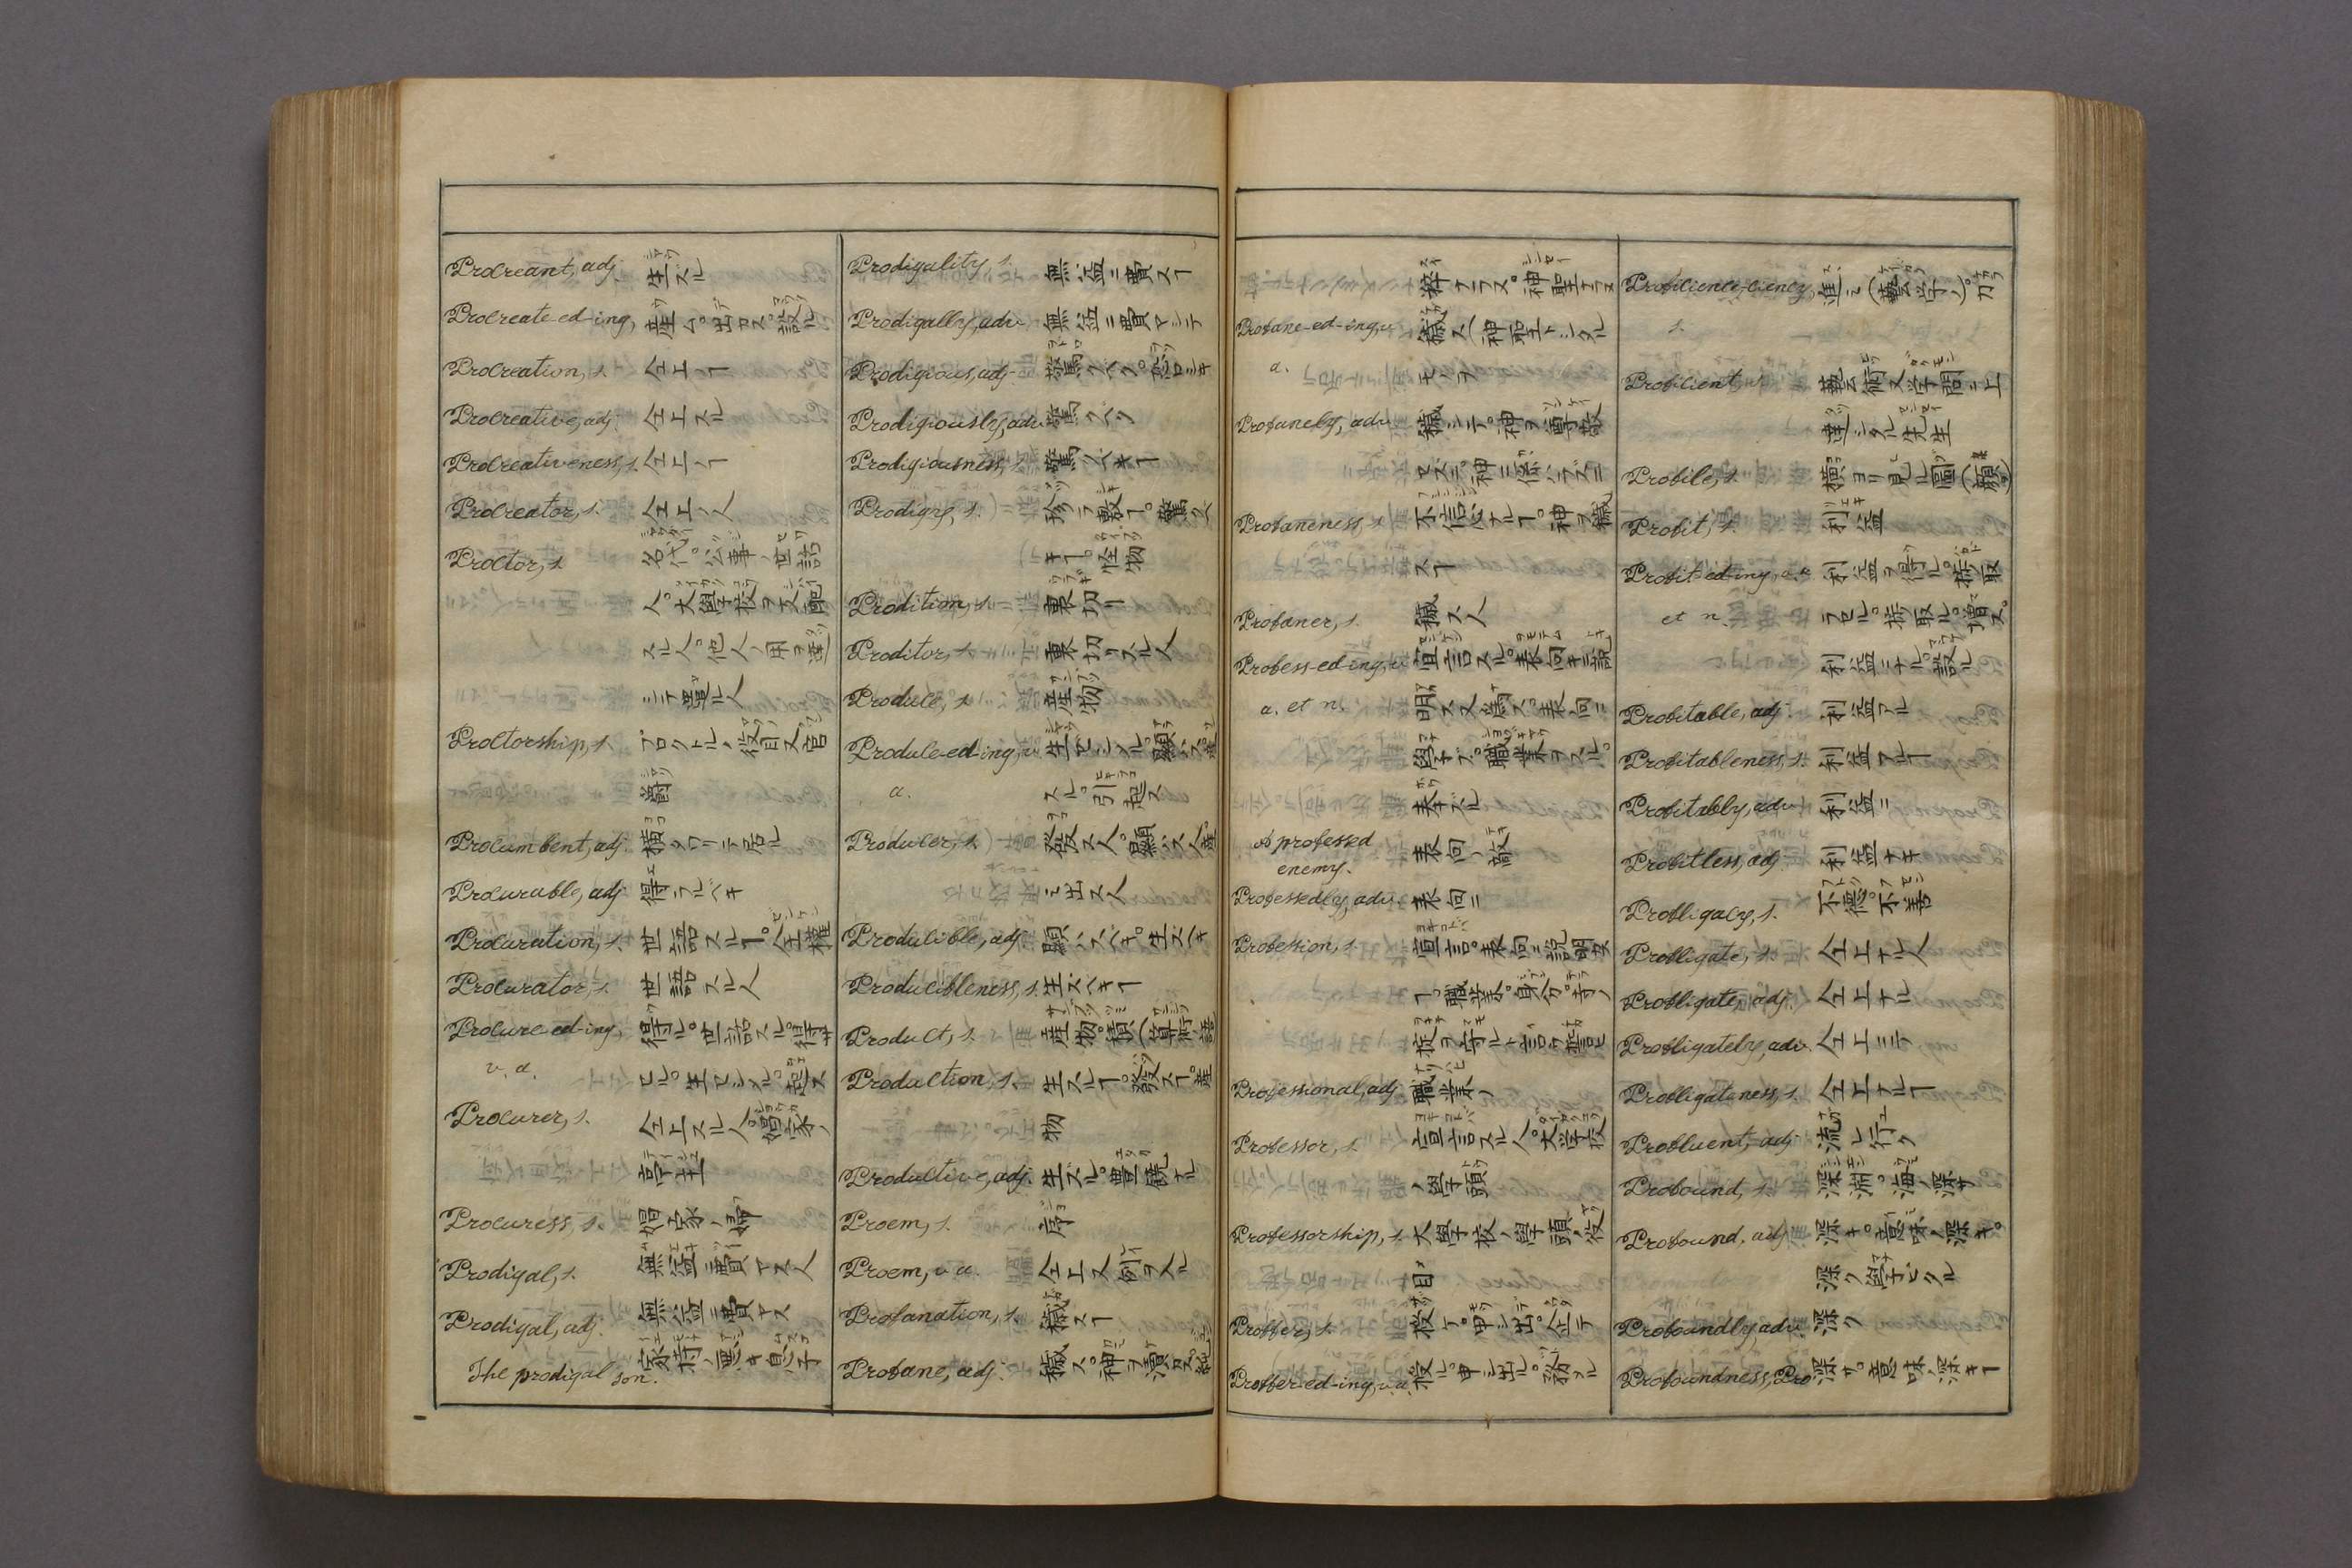 Procreant, adj. 生スル
Procreate-ed-ing, 産ム。出アス。設ル
Procreation, s. 仝上ノヿ
Procreative, adj. 仝上スル
Procreativeness, s. 仝上ノヿ
Procreator, s. 仝上ノ人
Proctor, s. 名代。公事ノ世話
人。大學校ヲ支配
スル人。他人ノ用ヲ達
シテ遣ル人
Proctorship, s. プロクトルノ役目又官
爵
Procumbent, adj. 横ハリテ居ル
Procurable, adj. 得ラルベキ
Procuration, s. 世話スルヿ。全權
Procurator, s. 世話スル人
Procure-ed-ing, 得ル。世話スル。得サ
v. a. セル。生セシムル。起ス
Procurer, s. 仝上スル人。娼家ノ
亭主
Procuress, s. 娼家ノ婦
Prodigal, s. 無益ニ費ヤス人
Prodigal, adj. 無益ニ費ヤス
The prodigal son. 家持ノ悪キ息子
Prodigality, s. 無益ニ費スヿ
Prodigally, adv. 無益ニ費ヤシテ
Prodigious, adj. 驚クベク。恐ロシキ
Prodigiously, adv. 驚クベク
Prodigiousness, s. 驚クベキヿ
Prodigy, s.
キヿ。怪物
Prodition, s. 裏切リ
Proditor, s. 裏切リスル人
Produce, s. 産物
Produce-ed-ing, v. 生ゼシムル。顕ハス。産
a. スル。引起ス
Producer, s. 發ス人。顕ハス人。産
ミ出ス人
Producible, adj. 顕ハスベキ。生ズベキ
Producibleness, s. 生ズベキヿ
Product, s. 産物。積(算術ノ語
Production, s. 生スルヿ。發スヿ。産
物
Productive, adj. 生ズル。豊饒ナル
Proem, s. 序
Proem, v. a. 仝上又例ヲ入ル
Profanation, s. 穢スヿ
Profane, adj. 穢ス。神ヲ涜ロス。純
粋ナラス。神聖ナラヌ
Profane-ed-ing, v. 穢ス(神聖トシタル
a. モノヲ
Profanely, adv. 穢シテ。神ヲ尊敬
セズニ。神ニ依ラズニ
Profaneness, s. 不信心ナルヿ。神ヲ穢
スヿ
Profaner, s. 穢ス人
Profess-ed-ing, v. 宣言スル。表向キニ説
a. et n. 明ス又為ス。表向ニ
學ブ。職業ヲスル。
奉ズル
A professed 表向ノ敵
enemy.
Professedly, adv. 表向ニ
Profession, s. 宣言。表向ニ説明ス
ヿ。職業。身分。寺ノ
掟ヲ守ルト言フ誓ヒ
Professional, adj. 職業ノ
Professor, s. 宣言スル人。大学校
ノ學頭
Professorship, s. 大學校ノ學頭ノ役
目
Proffer, s. 申シ出。企テ
Proffer-ed-ing, v. a. 授ル。申シ出ル。務ル
Proficience-ciency, 進ミ(藝学ノ)。力
s.
Proficient, s. 藝術又学問ニ上
達シタル先生
Profile, s. 横ヨリ見ル圖(顔
Profit, s. 利益
Profit-ed-ing, v. a. 利益ヲ得ル。
et n.
利益ニナル。設ル
Profitable, adj. 利益アル
Profitableness, s. 利益アルヿ
Profitably, adv. 利益ニ
Profitless, adj. 利益ナキ
Profligacy, s. 不徳。不善
Profligate, s. 仝上ナル人
Profligate, adj. 仝上ナル
Profligately, adv. 仝上ニテ
Profligateness, s. 仝上ナルヿ
Profluent, adj. 流レ行ク
Profound, s. 深淵。海ノ深サ
Profound, adj. 深キ。意味ノ深キ。
深ク學ビタル
Profoundly, adv. 深ク
Profoundness, Pro 深サ。意味ノ深キヿ